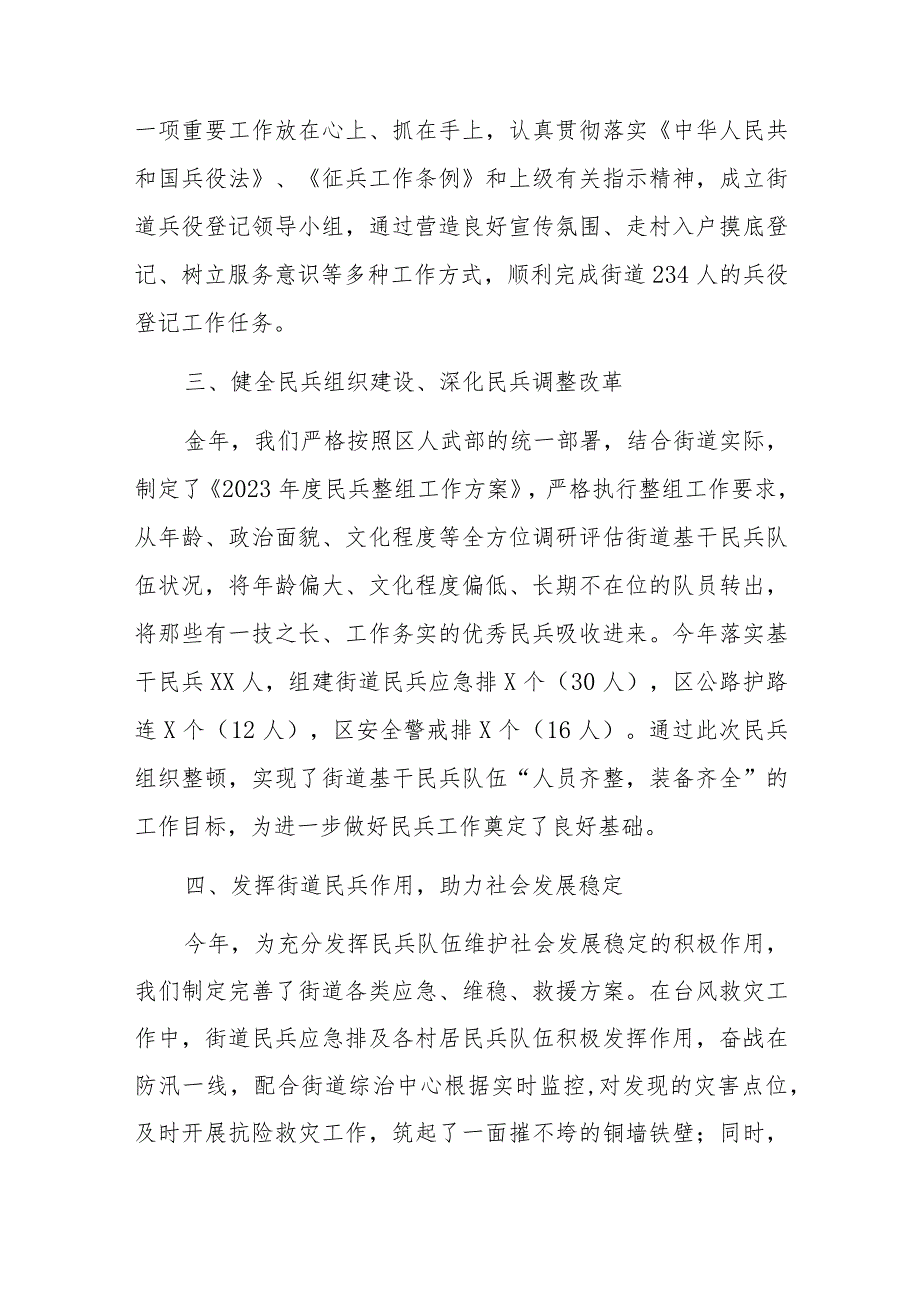 一项重要工作放在心上、抓在手上，认真贯彻落实《中华人民共
和国兵役法》、《征兵工作条例》和上级有关指示精神，成立街
道兵役登记领导小组，通过营造良好宣传氛围、走村入户摸底登
记、树立服务意识等多种工作方式，顺利完成街道 234 人的兵役
登记工作任务。
三、健全民兵组织建设、深化民兵调整改革
金年，我们严格按照区人武部的统一部署，结合街道实际，
制定了《2023 年度民兵整组工作方案》，严格执行整组工作要求，
从年龄、政治面貌、文化程度等全方位调研评估街道基干民兵队
伍状况，将年龄偏大、文化程度偏低、长期不在位的队员转出，
将那些有一技之长、工作务实的优秀民兵吸收进来。今年落实基
干民兵 XX 人，组建街道民兵应急排 X 个（30 人），区公路护路
连 X 个（12 人），区安全警戒排 X 个（16 人）。通过此次民兵
组织整顿，实现了街道基干民兵队伍“人员齐整，装备齐全”的
工作目标，为进一步做好民兵工作奠定了良好基础。
四、发挥街道民兵作用，助力社会发展稳定
今年，为充分发挥民兵队伍维护社会发展稳定的积极作用，
我们制定完善了街道各类应急、维稳、救援方案。在台风救灾工
作中，街道民兵应急排及各村居民兵队伍积极发挥作用，奋战在
防汛一线，配合街道综治中心根据实时监控,对发现的灾害点位，
及时开展抗险救灾工作，筑起了一面摧不垮的铜墙铁壁；同时，